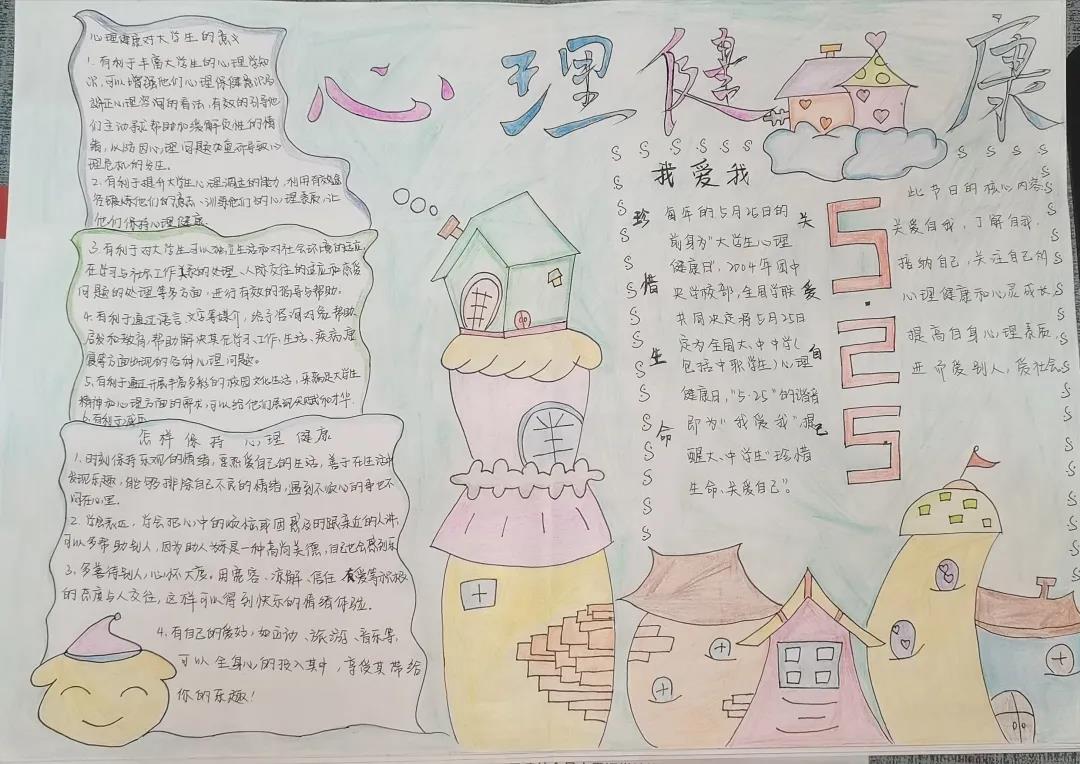 心理健康
心理健康对大学生的意义
1.有利于丰富大学生的心理学知
识,可以增强他们心理保健意识与
矫正心理咨询的看法,有效的引导他
们主动寻求帮助加缓解负性的情
绪,从防因心理问题加重而导致心
理危机的发生。
2.有利于提升大学生心理调适的能力,利用有效途
径锻炼他们的意志、训练他们的心理素质,让
他们保持心理健康
3.有利于对大学生可以独立生活和对社会环境的适应,
在学习与实际工作关系的处理、人际交往的适应和恋爱
问题的处理等多方面,进行有效的指导与帮助。
4.有利于通过语言、文字等媒介,给予咨询对象帮助、
启发和教育,帮助解决其在学习、工作、生活、疾病、康
复等方面出现的各种心理问题。
5.有利于通过开展丰富多彩的校园文化生活,来满足大学生
精神和心理方面的需求,可以给他们展现天赋和才华.
6.有利于减压
怎样保持心理健康
1.时刻保持乐观的情绪,要热爱自己的生活,善于在生活中
发现乐趣,能够排除自己不良的情绪,遇到不顺心的事也不
闷在心里.
2.学会表达,学会把心中的烦恼或困惑及时跟亲近的人讲,
可以多帮助别人,因为助人为乐是一种高尚美德,自己也会感到乐
3.多善待别人,心怀大度。用宽容、谅解、信任、友爱等积极
的态度与人交往,这样可以得到快乐的情绪体验.
4.有自己的爱好,如运动、旅游、音乐等,
可以全身心的投入其中,享受其带给
你的乐趣!
我爱我
珍惜生命
每年的5月25日的
前身为"大学生心理
健康日",2004年团中
央学校部,全国学联
共同决定将5月25日
定为全国大、中学生(
包括中职学生)心理
健康日,"5·25"的谐音
即为"我爱我",提
醒大、中学生"珍惜
生命、关爱自己"。
关爱自己
5.25
此节日的核心内容:
关爱自我,了解自我,
接纳自己,关注自己的
心理健康和心灵成长,
提高自身心理素质,
进而爱别人,爱社会